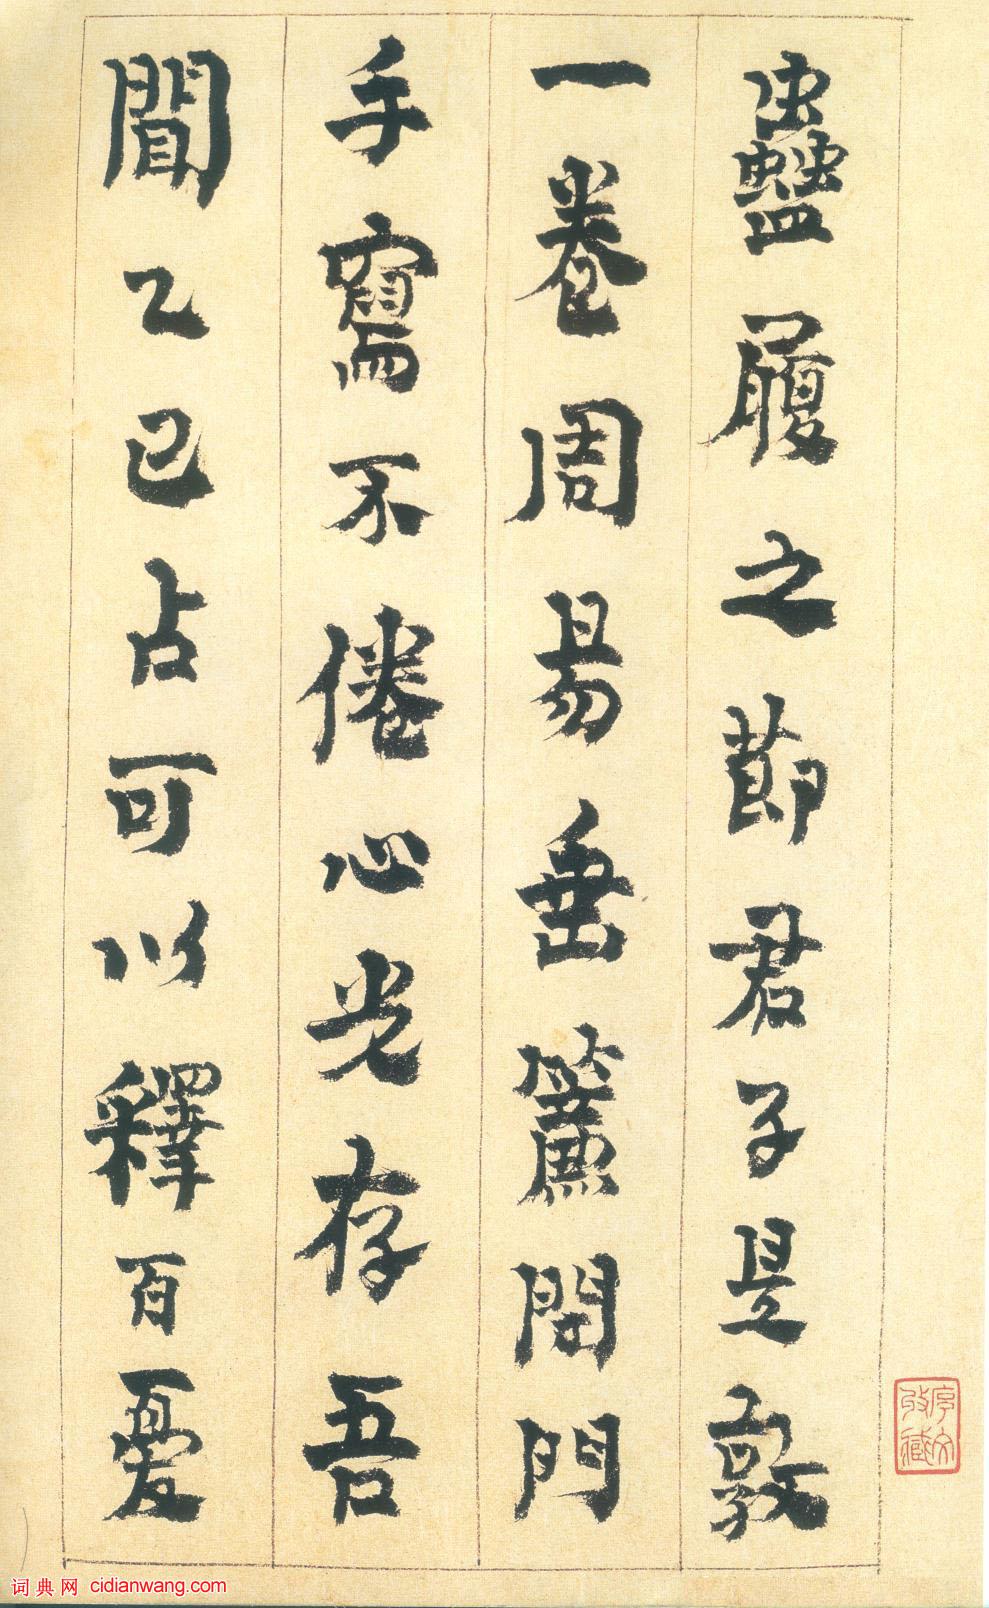 蠱履之節君子是敦
一卷周易垂簾閉門
手寫不倦心光存吾
聞乙巳占可以釋百憂
词典网 cidianwang.com